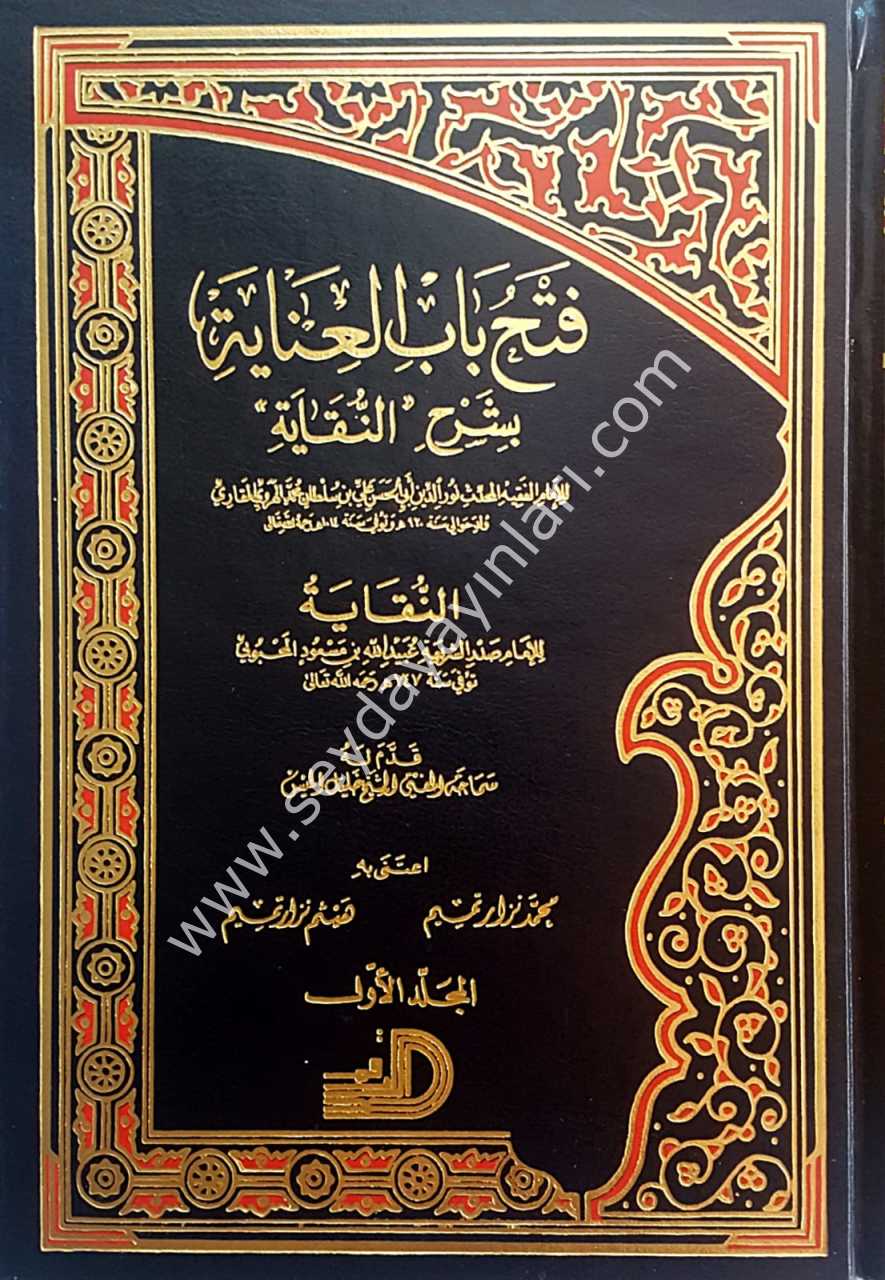 فَتْحُ بَابِ العِنَايَة
بِشَرْحِ «النُّقَايَة»
للإمام الفقيه المحدّث نور الدين أبي الحسن علي بن سلطان محمد الهروي القاري
ولد حوالي سنة ٩٣٠ هـ وتوفي سنة ١٠١٤ هـ رحمه الله تعالى
النُّقَايَة
للإمام صدر الشريعة عُبيد الله بن مسعود المحبوبي
توفي سنة ٧٤٧ هـ رحمه الله تعالى
قدَّم له
سماحة المفتي الشيخ خليل الميس
اعتنى به
محمد نزار تميم هيثم نزار تميم
المجلّد الأوّل
الأرقم
www.seydayayinlari.com